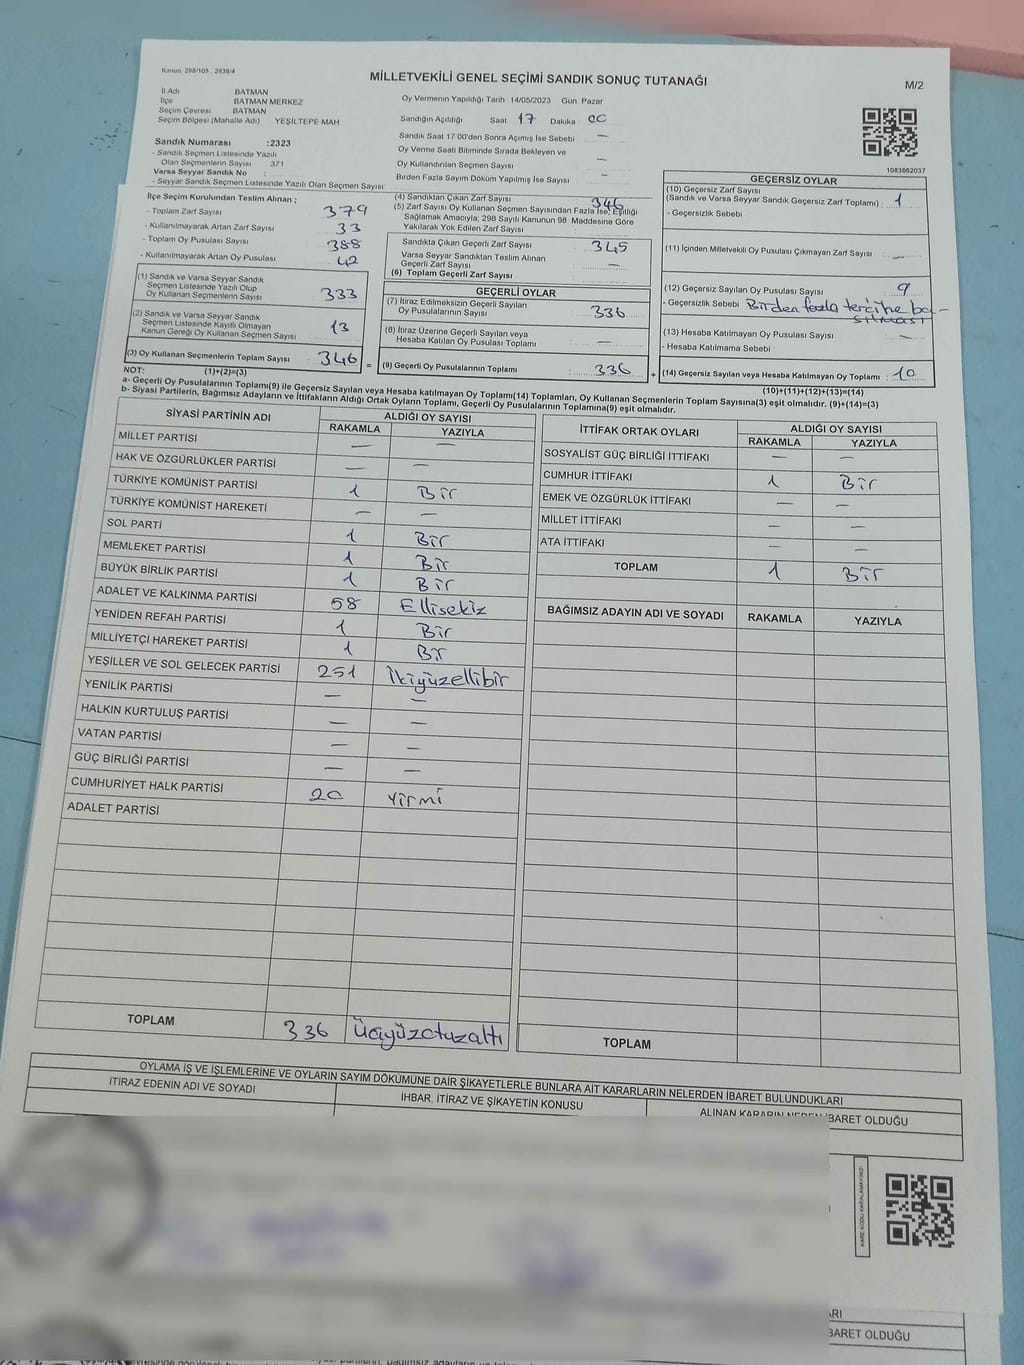 Kanun, 298/105 , 2839/4
MİLLETVEKİLİ GENEL SEÇİMİ SANDIK SONUÇ TUTANAĞI
M/2
İl Adı BATMAN
İlçe BATMAN MERKEZ
Seçim Çevresi BATMAN
Seçim Bölgesi (Mahalle Adı) YEŞİLTEPE MAH
Oy Vermenin Yapıldığı Tarih 14/05/2023 Gün. Pazar
Sandığın Açıldığı Saat 17 Dakika 00
Sandık Saat 17 00'den Sonra Açılmış İse Sebebi —
Oy Verme Saati Bitiminde Sırada Bekleyen ve
Oy Kullandırılan Seçmen Sayısı —
Birden Fazla Sayım Döküm Yapılmış İse Sayısı —
Sandık Numarası :2323
- Sandık Seçmen Listesinde Yazılı
Olan Seçmenlerin Sayısı 371
Varsa Seyyar Sandık No
- Seyyar Sandık Seçmen Listesinde Yazılı Olan Seçmen Sayısı
1083862037
İlçe Seçim Kurulundan Teslim Alınan ;
- Toplam Zarf Sayısı 379
- Kullanılmayarak Artan Zarf Sayısı 33
- Toplam Oy Pusulası Sayısı 388
- Kullanılmayarak Artan Oy Pusulası 42
(1) Sandık ve Varsa Seyyar Sandık
Seçmen Listesinde Yazılı Olup
Oy Kullanan Seçmenlerin Sayısı 333
(2) Sandık ve Varsa Seyyar Sandık
Seçmen Listesinde Kayıtlı Olmayan
Kanun Gereği Oy Kullanan Seçmen Sayısı 13
(3) Oy Kullanan Seçmenlerin Toplam Sayısı : 346 =
(4) Sandıktan Çıkan Zarf Sayısı 346
(5) Zarf Sayısı Oy Kullanan Seçmen Sayısından Fazla İse, Eşitliği
Sağlamak Amacıyla, 298 Sayılı Kanunun 98. Maddesine Göre
Yakılarak Yok Edilen Zarf Sayısı
Sandıkta Çıkan Geçerli Zarf Sayısı : 345
Varsa Seyyar Sandıktan Teslim Alınan
Geçerli Zarf Sayısı —
(6) Toplam Geçerli Zarf Sayısı
GEÇERLİ OYLAR
(7) İtiraz Edilmeksizin Geçerli Sayılan
Oy Pusulalarının Sayısı : 336
(8) İtiraz Üzerine Geçerli Sayılan veya
Hesaba Katılan Oy Pusulası Toplamı : —
(9) Geçerli Oy Pusulalarının Toplamı : 336 +
GEÇERSİZ OYLAR
(10) Geçersiz Zarf Sayısı
(Sandık ve Varsa Seyyar Sandık Geçersiz Zarf Toplamı) : 1
- Geçersizlik Sebebi
(11) İçinden Milletvekili Oy Pusulası Çıkmayan Zarf Sayısı : —
(12) Geçersiz Sayılan Oy Pusulası Sayısı : 9
- Geçersizlik Sebebi Birden fazla tercihe ba-
sılması
(13) Hesaba Katılmayan Oy Pusulası Sayısı : —
- Hesaba Katılmama Sebebi
(14) Geçersiz Sayılan veya Hesaba Katılmayan Oy Toplamı : 10
NOT: (1)+(2)=(3)
(10)+(11)+(12)+(13)=(14)
a- Geçerli Oy Pusulalarının Toplamı(9) ile Geçersiz Sayılan veya Hesaba katılmayan Oy Toplamı(14) Toplamları, Oy Kullanan Seçmenlerin Toplam Sayısına(3) eşit olmalıdır. (9)+(14)=(3)
b- Siyasi Partilerin, Bağımsız Adayların ve İttifakların Aldığı Ortak Oyların Toplamı, Geçerli Oy Pusulalarının Toplamına(9) eşit olmalıdır.
SİYASİ PARTİNİN ADI ALDIĞI OY SAYISI
RAKAMLA YAZIYLA
MİLLET PARTİSİ — —
HAK VE ÖZGÜRLÜKLER PARTİSİ — —
TÜRKİYE KOMÜNİST PARTİSİ 1 Bir
TÜRKİYE KOMÜNİST HAREKETİ — —
SOL PARTİ 1 Bir
MEMLEKET PARTİSİ 1 Bir
BÜYÜK BİRLİK PARTİSİ 1 Bir
ADALET VE KALKINMA PARTİSİ 58 Ellisekiz
YENİDEN REFAH PARTİSİ 1 Bir
MİLLİYETÇİ HAREKET PARTİSİ 1 Bir
YEŞİLLER VE SOL GELECEK PARTİSİ 251 İkiyüzellibir
YENİLİK PARTİSİ — —
HALKIN KURTULUŞ PARTİSİ — —
VATAN PARTİSİ — —
GÜÇ BİRLİĞİ PARTİSİ — —
CUMHURİYET HALK PARTİSİ 20 Yirmi
ADALET PARTİSİ
TOPLAM 336 Üçyüzotuzaltı
İTTİFAK ORTAK OYLARI ALDIĞI OY SAYISI
RAKAMLA YAZIYLA
SOSYALİST GÜÇ BİRLİĞİ İTTİFAKI — —
CUMHUR İTTİFAKI 1 Bir
EMEK VE ÖZGÜRLÜK İTTİFAKI — —
MİLLET İTTİFAKI — —
ATA İTTİFAKI — —
TOPLAM 1 Bir
BAĞIMSIZ ADAYIN ADI VE SOYADI RAKAMLA YAZIYLA
TOPLAM
OYLAMA İŞ VE İŞLEMLERİNE VE OYLARIN SAYIM DÖKÜMÜNE DAİR ŞİKAYETLERLE BUNLARA AİT KARARLARIN NELERDEN İBARET BULUNDUKLARI
İTİRAZ EDENİN ADI VE SOYADI
İHBAR, İTİRAZ VE ŞİKAYETİN KONUSU
ALINAN KARARIN NEDEN İBARET OLDUĞU
KARE KODU KARALAMAYINIZ!
ARI
BARET OLDUĞU